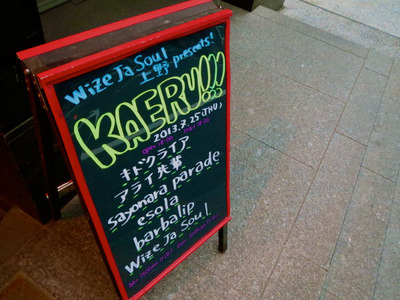 Wize Ja Soul
上野 presents!
KAERU!!!
2013.7.25(THU)
open 18:00
キドクライア
アライ先輩
Sayonara parade
esola
barbalip
Wize Ja Soul